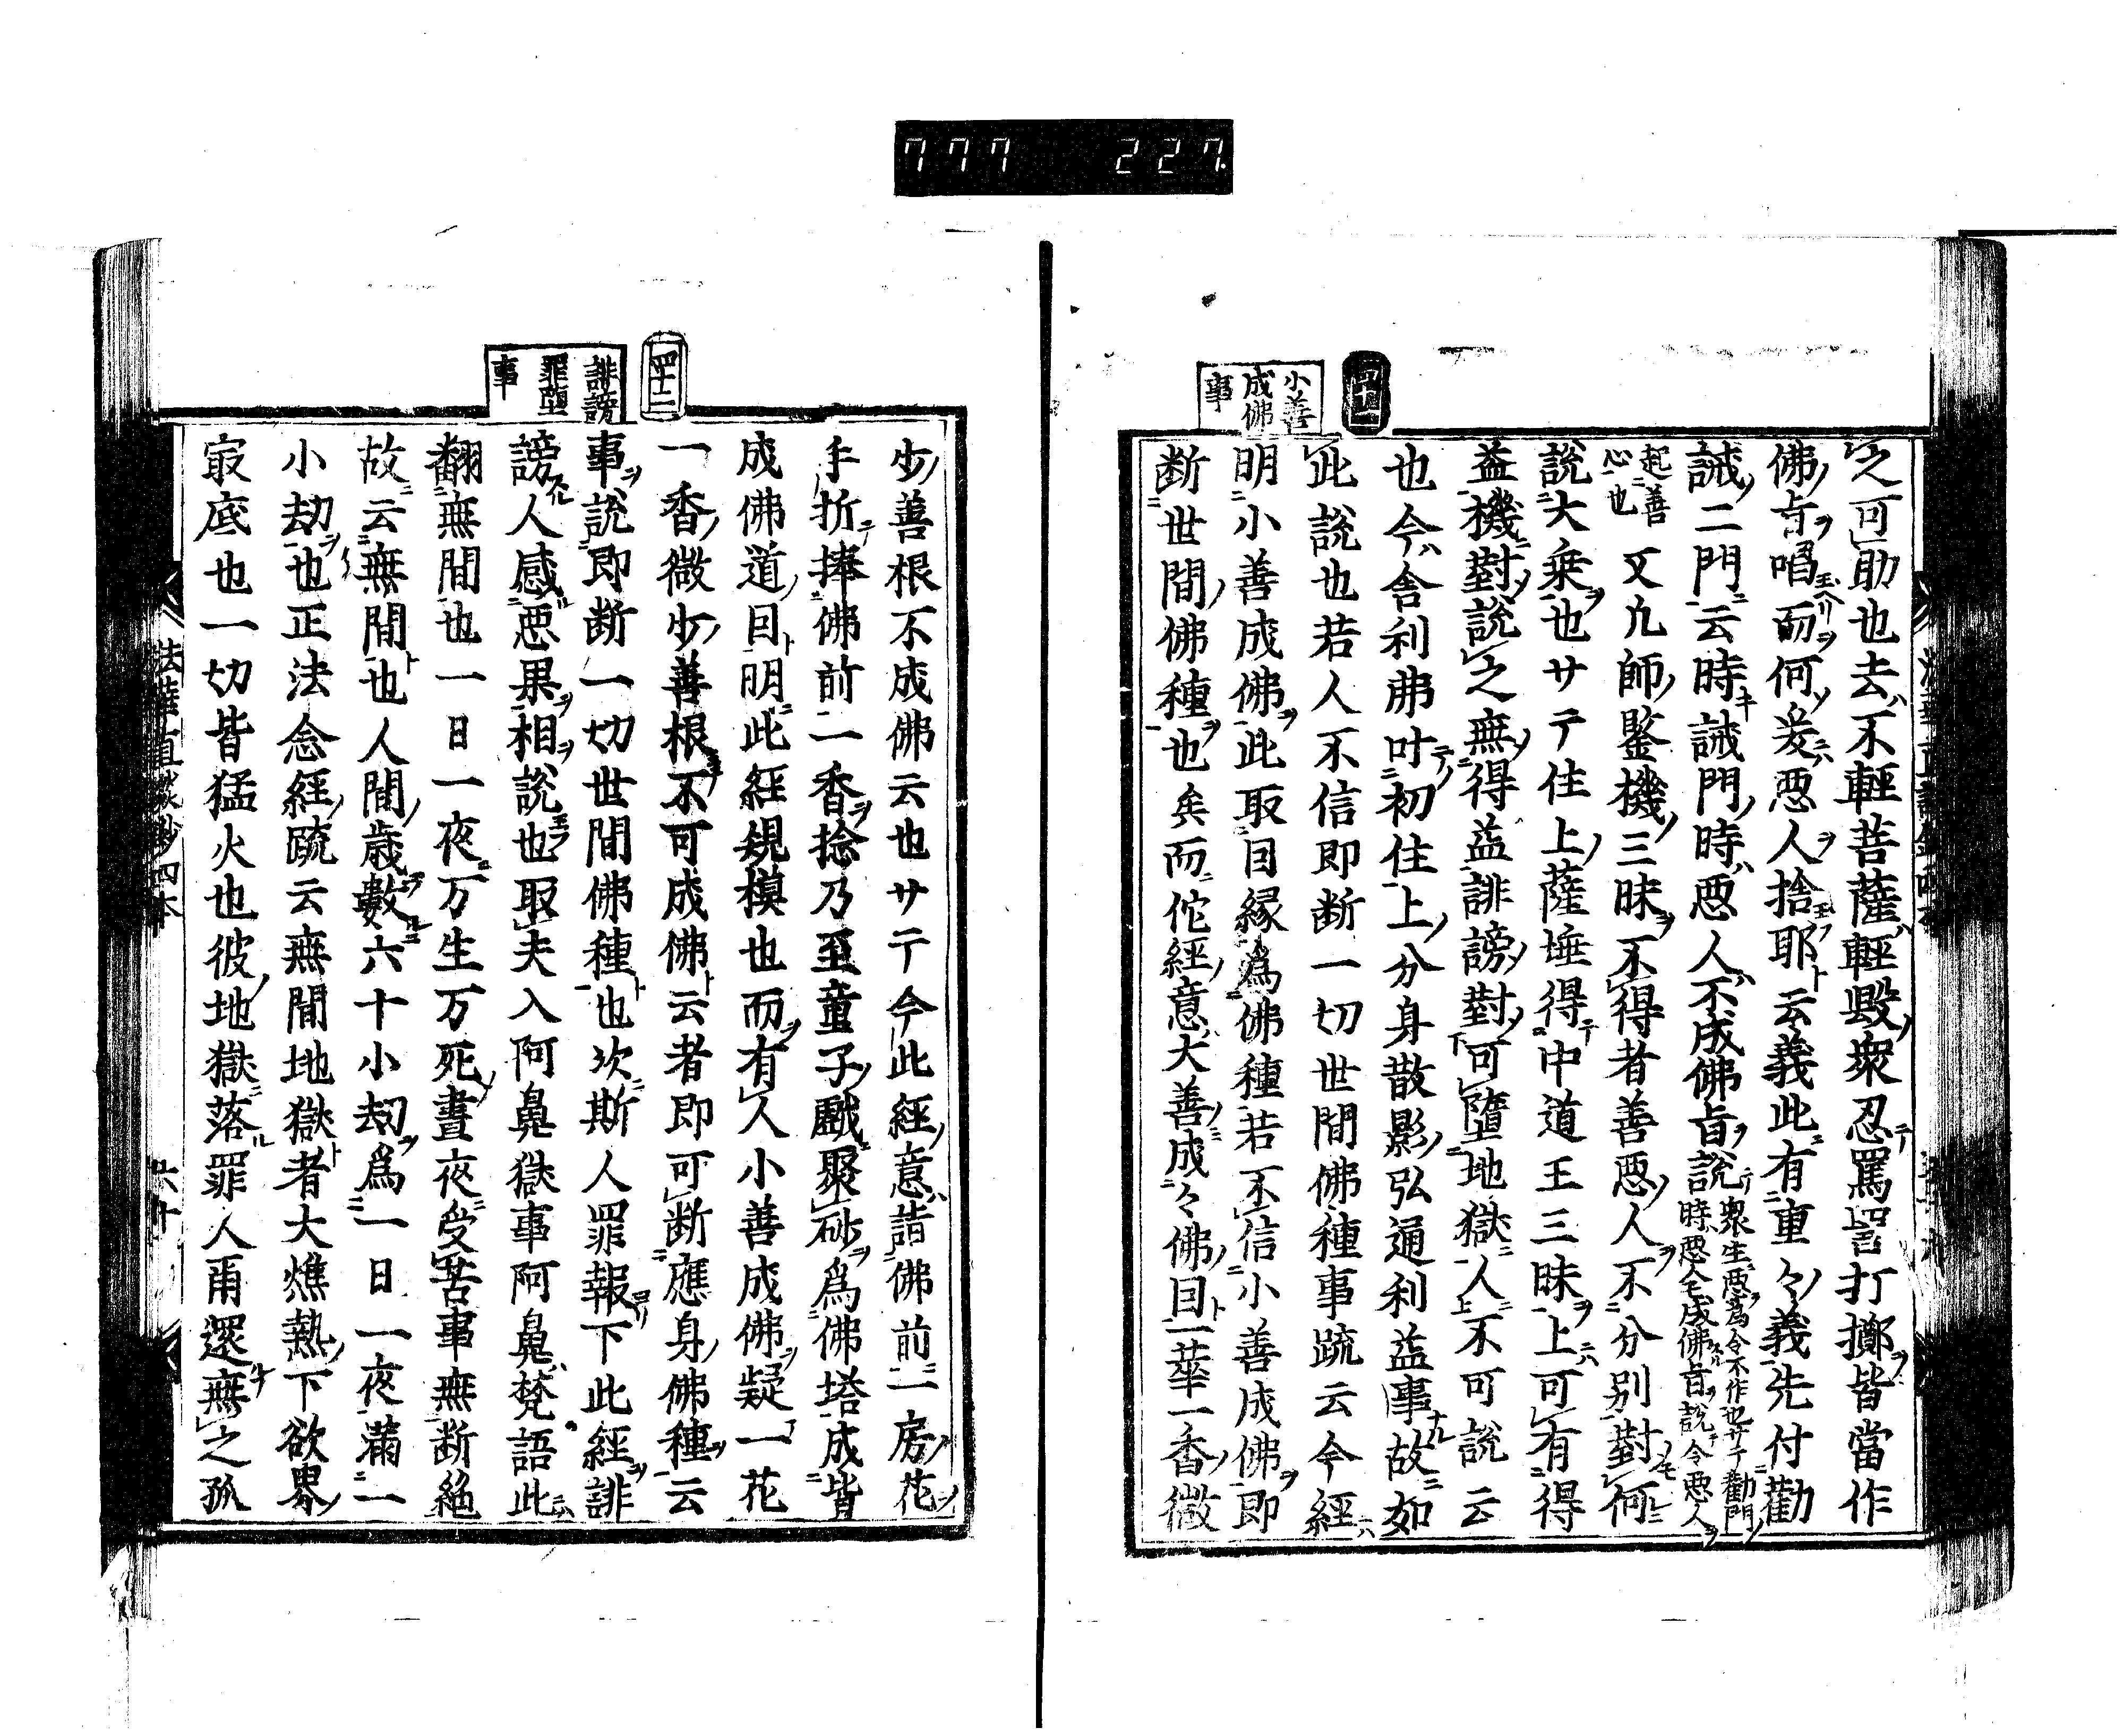 777 227
四十一
小善
成佛
事
之可助也去不輕菩薩輕毀衆忍罵詈打擲皆當作
佛旨唱而何爰惡人捨耶云義此有重々義先付勸
誡二門云時誡門時惡人不成佛旨說衆生惡爲令不作也サテ勸門
時惡人モ成佛旨說令惡人
起善
心也
又凡師鑒機三昧不得者善惡人不分別對何
說大乗也サテ住上薩埵得中道王三昧上可有得
益機對說之無得益誹謗對可墮地獄人不可說云
也今舍利弗叶初住上分身散影弘通利益事故如
此說也若人不信即断一切世間佛種事䟽云今經
明小善成佛此取因縁爲佛種若不信小善成佛即
断世間佛種也矣而佗經意大善成々佛因一華一香微
四十二
誹謗
罪墮
事
少善根不成佛云也サテ今此經意詣佛前一房花
手折捧佛前二香捻乃至童子戲聚砂爲佛塔成皆
成佛道因明此經䂓模也而有人小善成佛疑一花
一香微少善根不可成佛云者即可断應身佛種云
事說即断一切世間佛種也次斯人罪報下此經誹
謗人感惡果相說也取夫入阿鼻獄事阿鼻梵語此
翻無間也一日一夜万生万死晝夜受苦事無断絶
故云無間也人間歳數六十小劫爲一日一夜滿一
小劫也正法念經䟽云無間地獄者大燋熱下欲界
㝡底也一切皆猛火也彼地獄落罪人甭還無之孤
法華直談鈔四本 六十